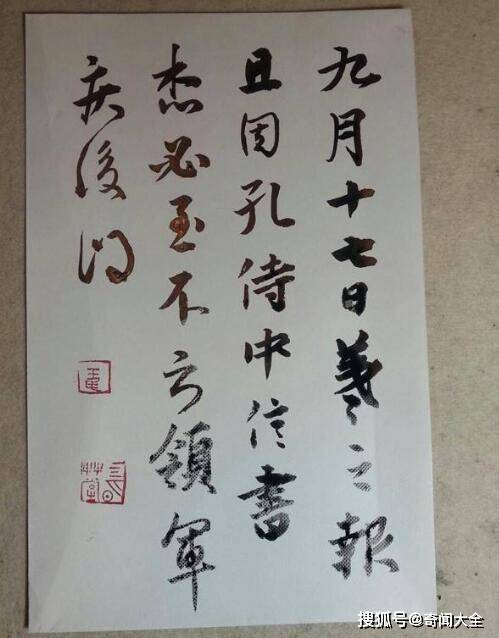 九月十七日羲之報
且因孔侍中信書
想必至不知領軍
疾後問
搜狐号@奇闻大全